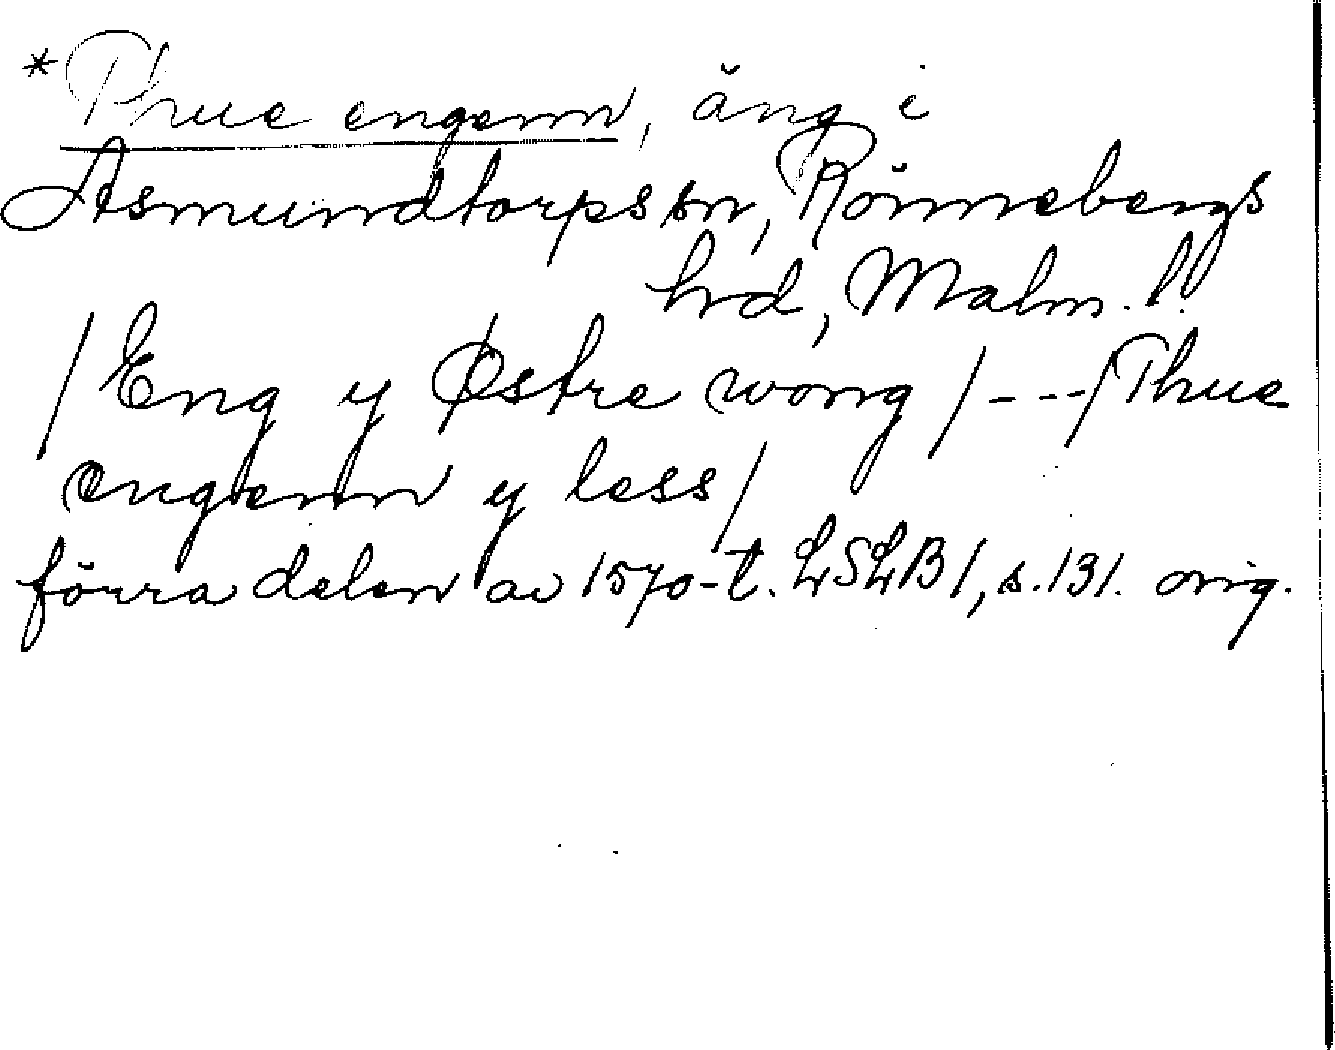 *Thue engenn, äng i
Asmundtorps sn, Rönnebergs
hrd, Malm. l.
/Eng y Østre wong / - - - / Thue
engenn y less/
förra delen av 1570-t. LSLB 1, s. 131. orig.